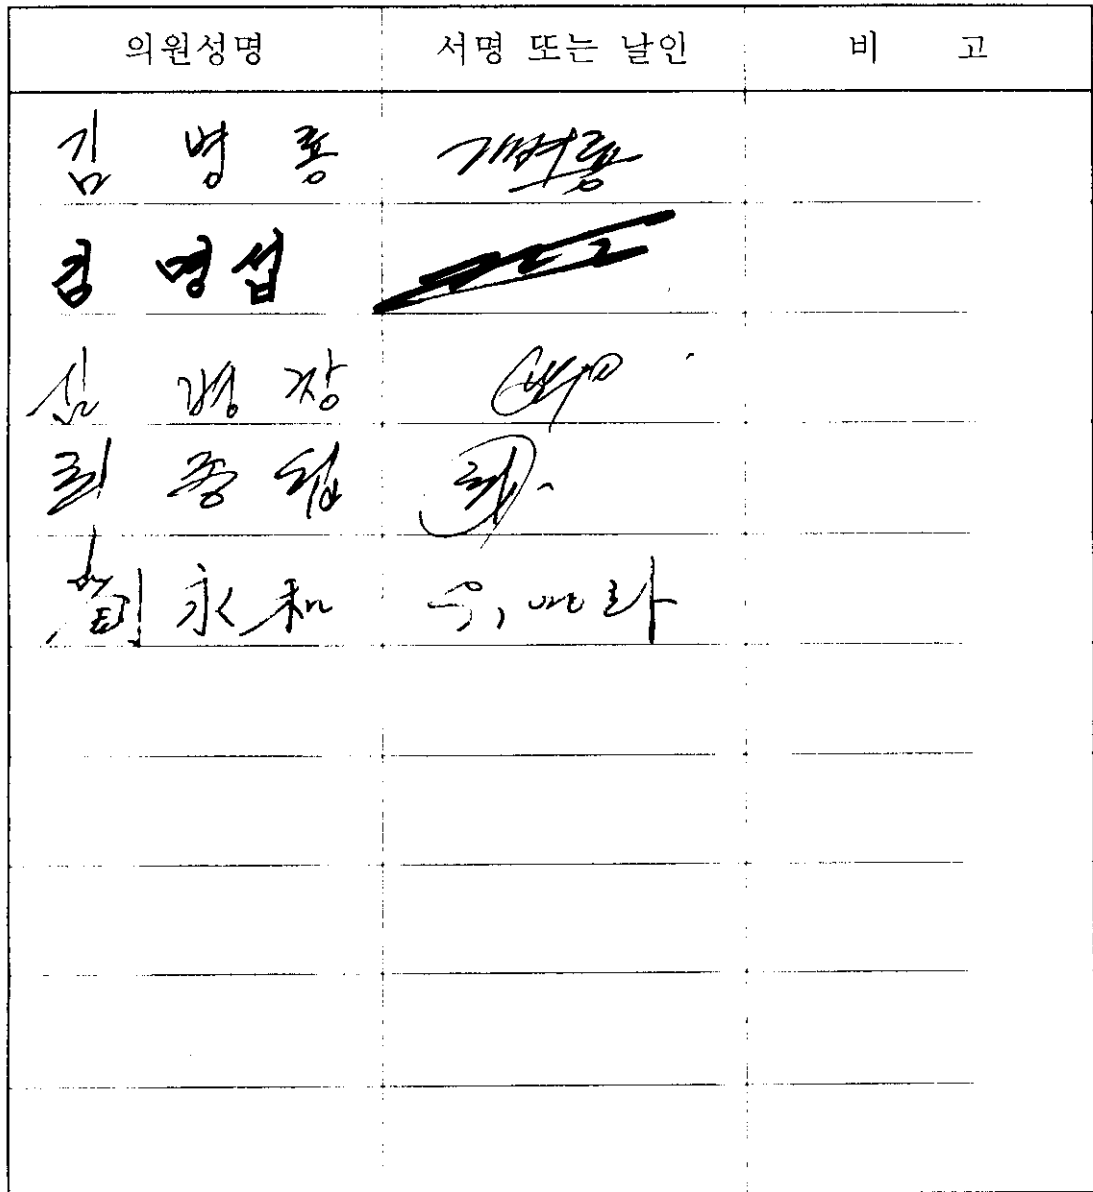 의원성명 서명 또는 날인 비 고
김 병 룡 김병룡
김 명 섭
심 병 장
최 종 립 최
劉 永 和